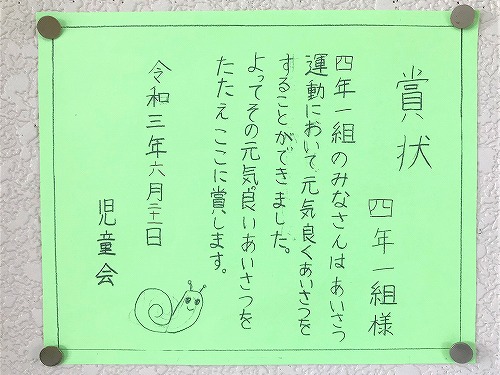 賞状
四年一組様
四年一組のみなさんはあいさつ
運動において元気良くあいさつを
することができました。
よってその元気良いあいさつを
たたえここに賞します。
令和三年六月二十一日
児童会